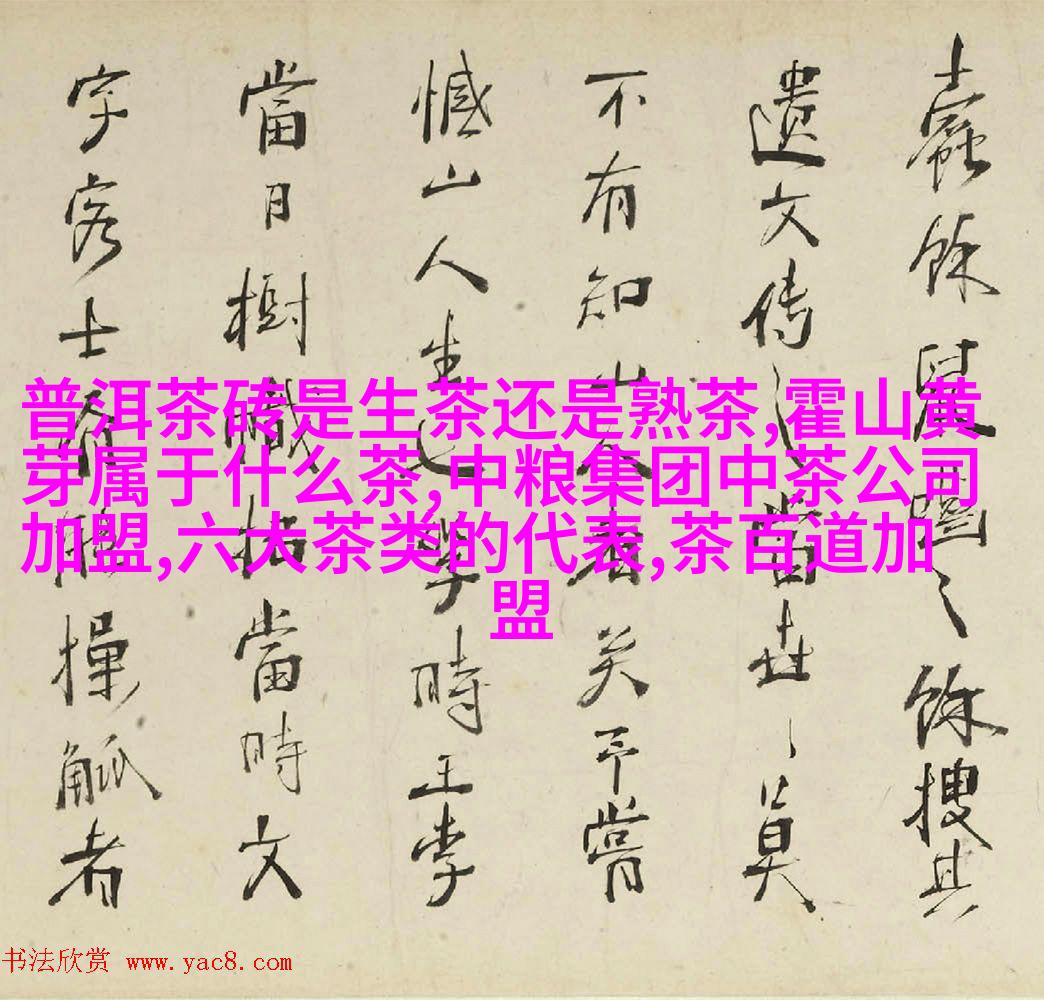 蠹餘鼠之餘搜其
遺文传之當世莫
不有知山人者矣予嘗
憾山人生學時王李
當日樹幟當時文
字客士操觚者
普洱茶砖是生茶还是熟茶,霍山黄
芽属于什么茶,中粮集团中茶公司
加盟,六大茶类的代表,茶百道加
盟
书法欣赏 www.yac8.com